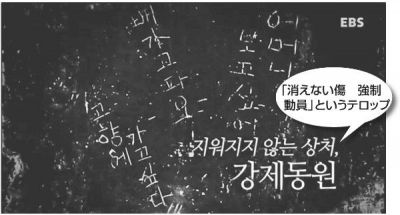 EBS
어머니
보고싶어
배가고파요
고향에
가고싶다
지워지지 않는 상처,
강제동원
「消えない傷　強制
動員」というテロップ